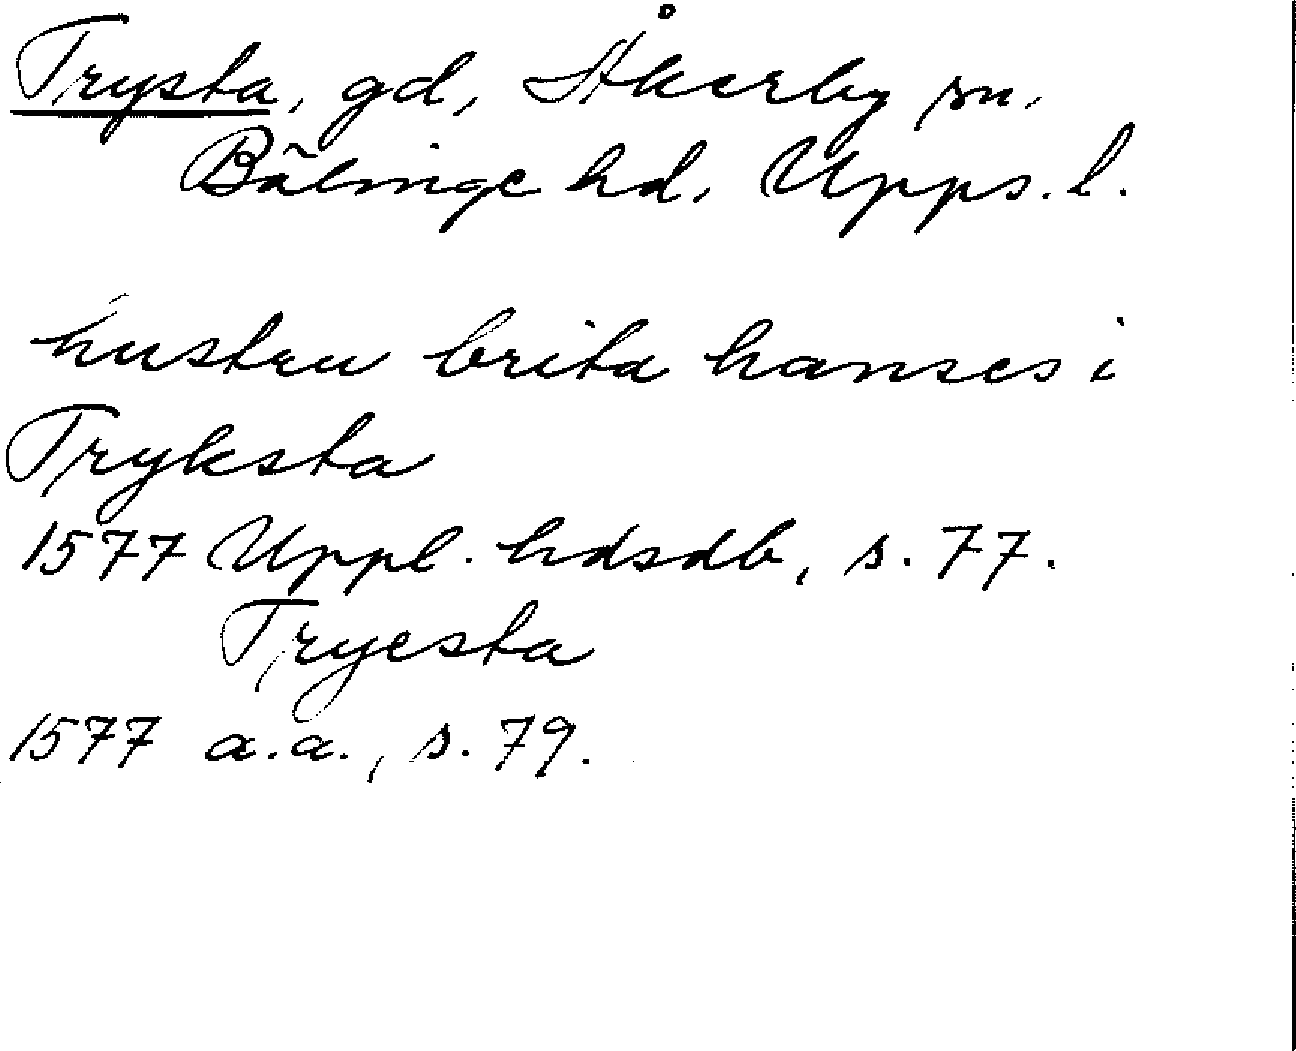 Trysta, gd, Åkerby sn,
Bälinge hd, Upps. l.
hustru brita hanses i
Tryksta
1577 Uppl. hdsdb, s. 77.
Trycsta
1577 a.a., s. 79.